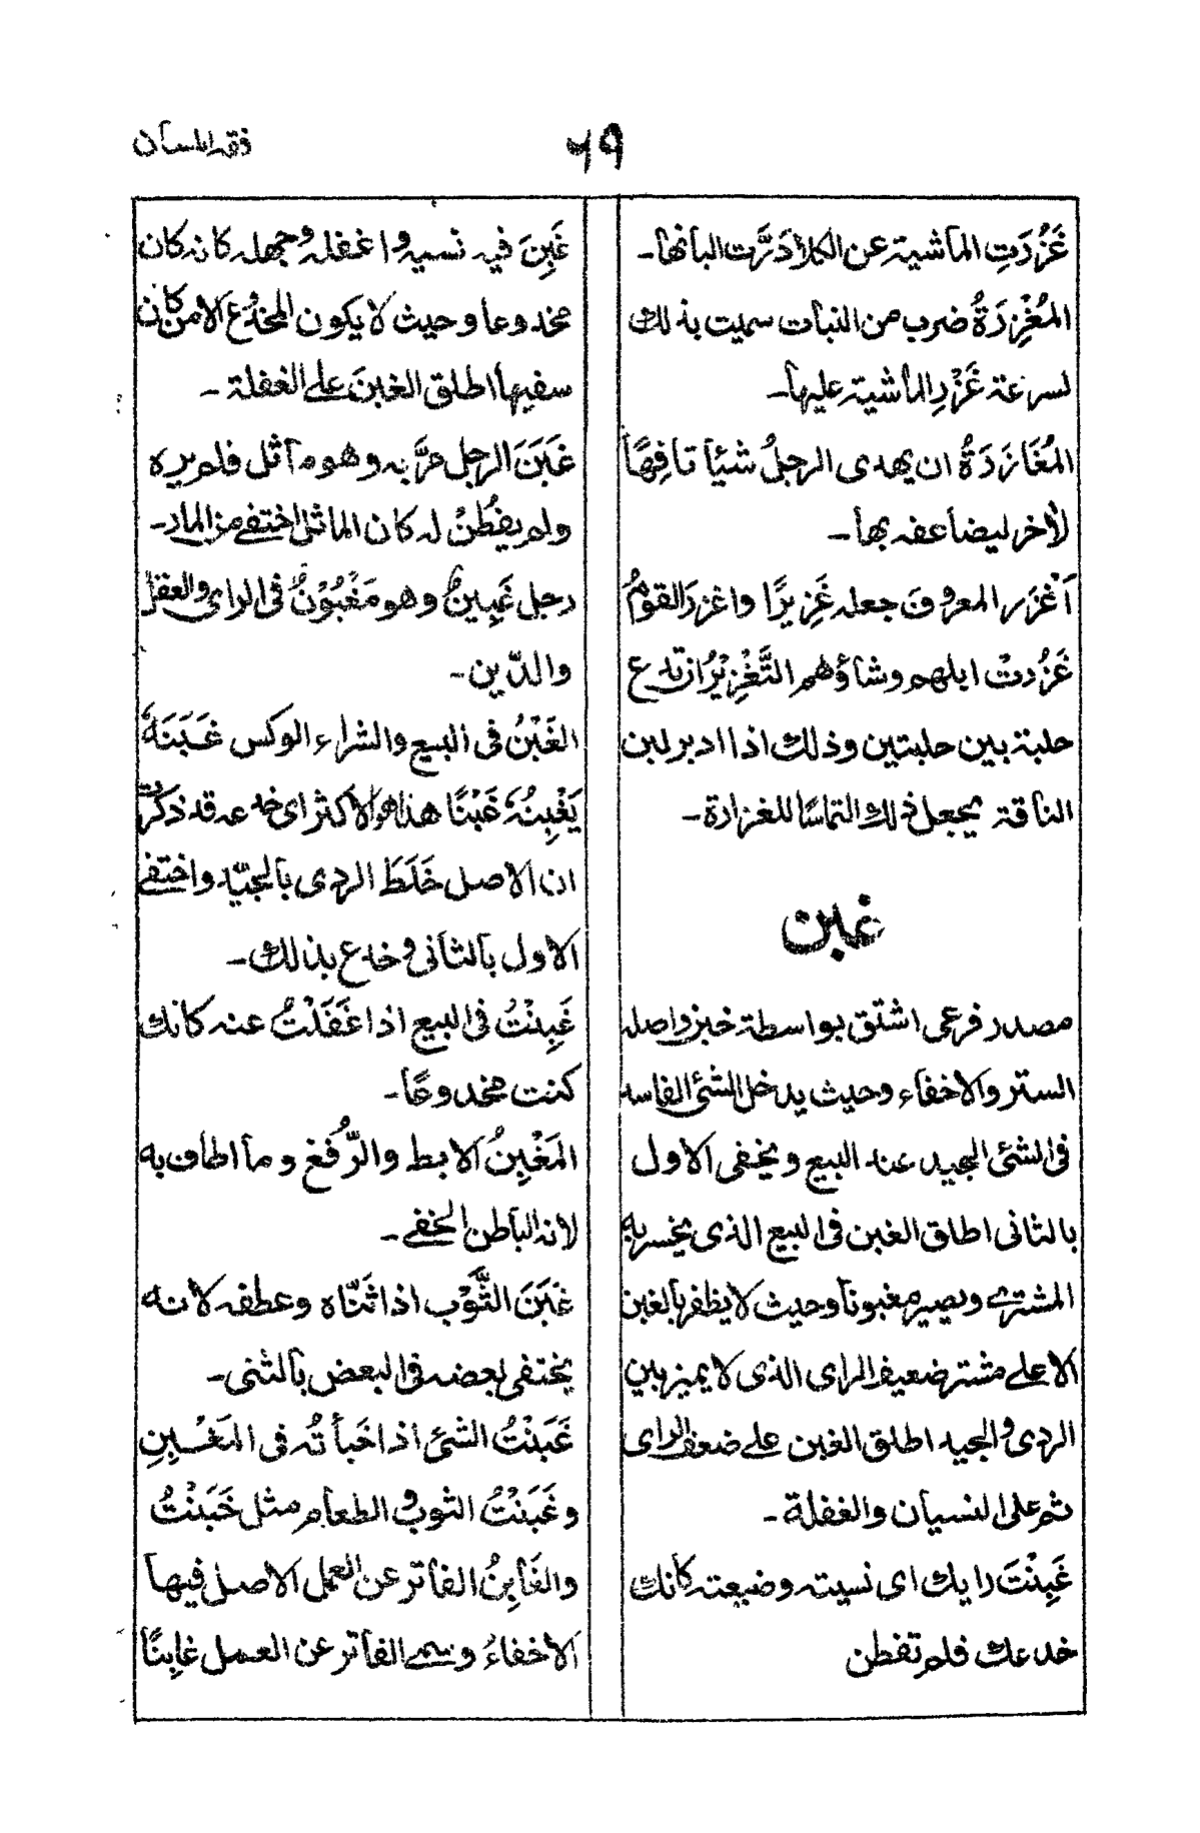 فقه اللسان
٦٩
غَزُرَتِ الماشية عن الكلأ دَرَّت البانها۔
المُغْزِرَةُ ضرب من النبات سميت بذلك
لسرعة غَزْرِ الماشية عليها۔
المُغَازَرَةُ ان يهدى الرجلُ شيأ تافِهًا
لأخر ليضاعفه بها۔
اَغْزَر المعروفَ جعله غَزِيرًا واغزرَ القومُ
غَزُرتْ ابلهم وشاؤهم التَّغْزِيْرُ ان تدع
حلبة بين حلبتين وذلك اذا ادبر لبن
الناقة يجعل ذلك التماسًا للغزارة۔
غبن
مصدر فرعى اشتق بواسطة خبن واصله
الستر والاخفاء وحيث يدخل الشئ الفاسد
فى الشئ الجيد عند البيع ويخفى الاول
بالثانى اطلق الغبن فى البيع الذى يخسر به
المشترى ويصير مغبونا وحيث لا يظفر بالغبن
الا على مشتر ضعيف الراى الذى لا يميز بين
الردى والجيد اطلق الغبن على ضعف الراى
ثم على النسيان والغفلة۔
غَبِنْتَ رايك اى نسيته وضيعته كانك
خدعك فلم تفطن
غَبِنَ فيه نسيه واغفله وجهله كانه كان
مخدوعا وحيث لا يكون المخدوع الا من كان
سفيها اطلق الغبنَ على الغفلة۔
غَبَنَ الرجل مرَّ به وهو ماثل فلم يره
ولم يفطُنْ له كان الماثل اختفى من المار۔
رجل غَبِينٌ وهو مَغْبُوْنٌ فى الراى والعقل
والدّين۔
الغَبْنُ فى البيع والشراء الوكس غَبَنَهٗ
يَغْبِنُهٗ غَبْنًا هذا هو الاكثر اى خدعه قد ذكرت
ان الاصل خَلَطَ الردى بالجيّد واختفى
الاول بالثانى وخدع بذلك۔
غَبِنْتُ فى البيع اذا غَفَلْتُ عنه كانك
كنت مخدوعًا۔
المَغْبِنُ الابط والرُّفغ وما اطاف به
لانه الباطن الخفى۔
غَبَنَ الثَّوْب اذا ثَنّاه وعطفه لانه
يختفى بعضه فى البعض بالثنى۔
غَبَنْتُ الشئ اذا خَبأتُه فى المَغْبِنِ
وغَبَنْتُ الثوب والطعام مثل خَبَنْتُ
والغَابِنُ الفاتر عن العمل الاصل فيها
الاخفاءُ وسمى الفاتر عن العمل غابِنًا